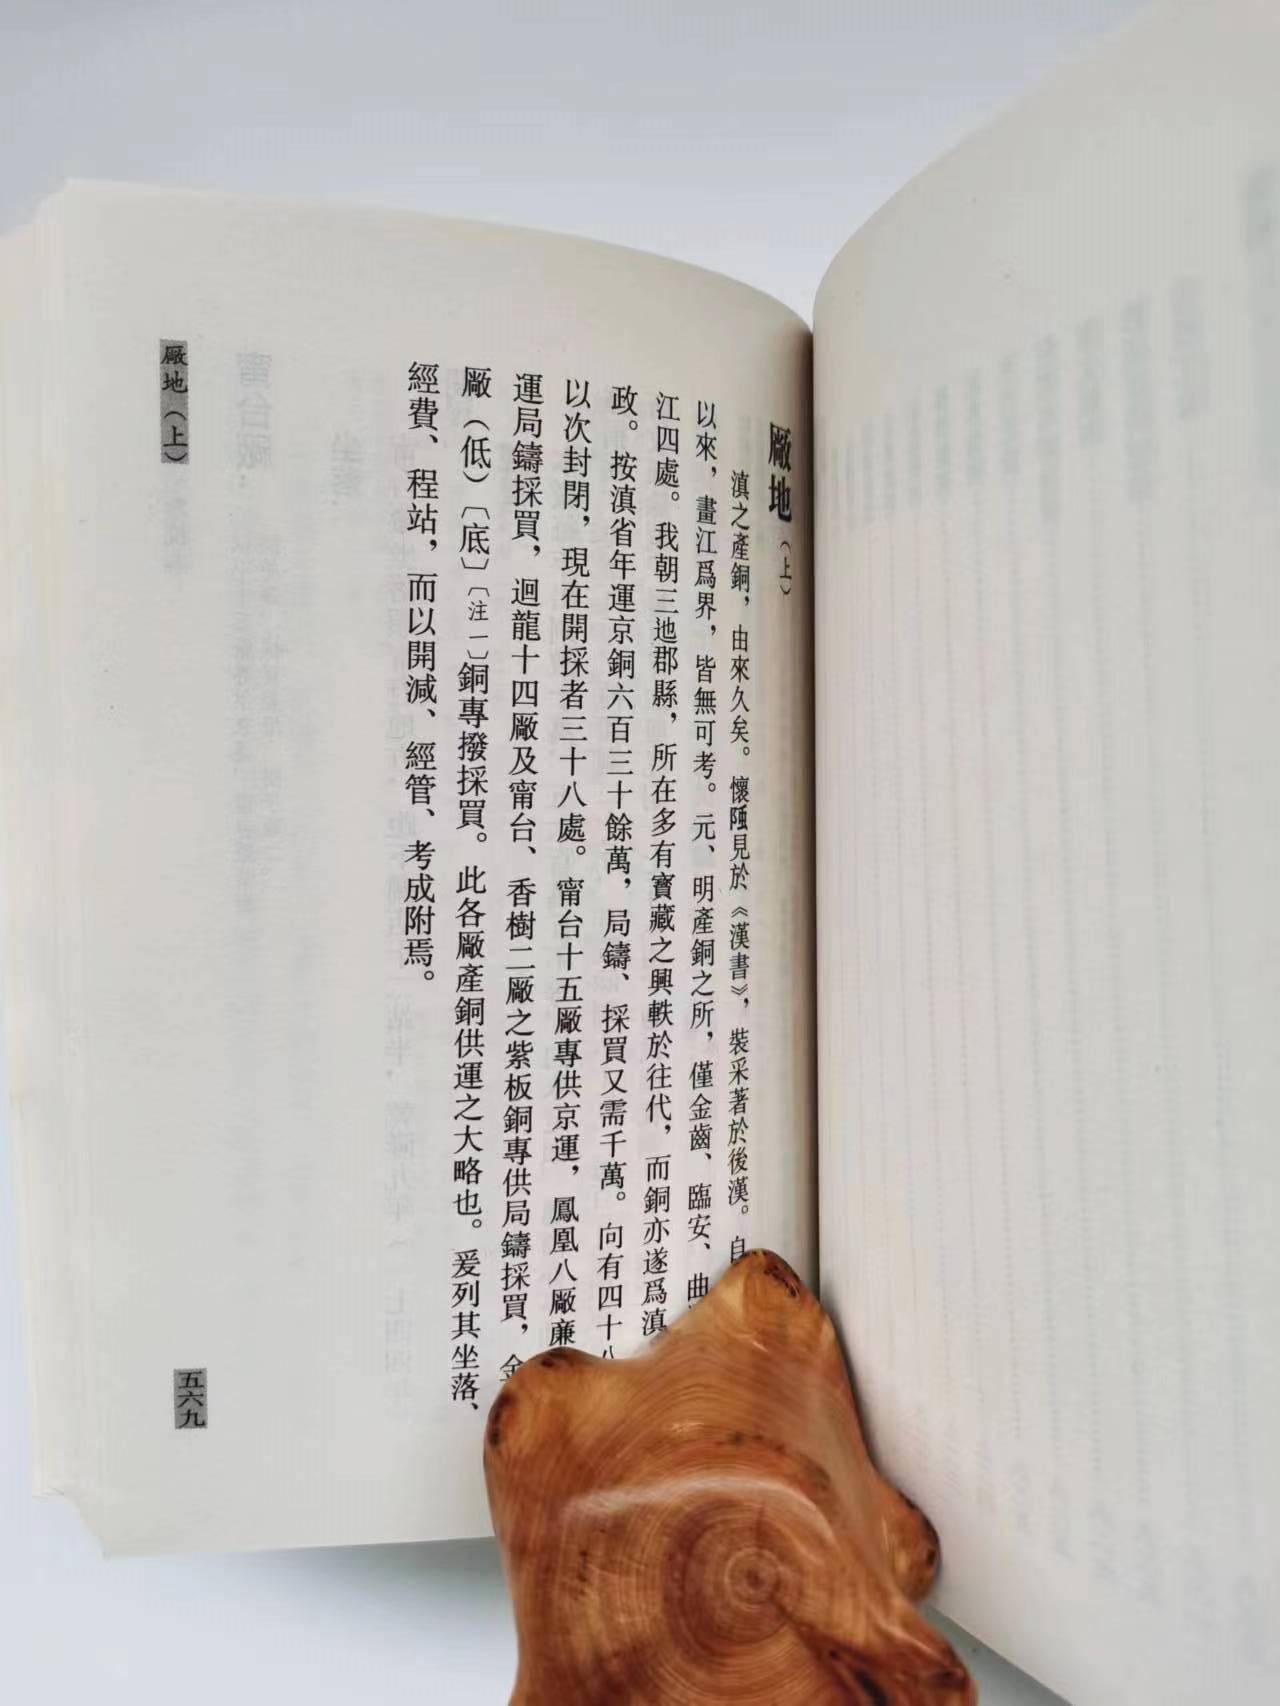 廠地（上）
滇之產銅，由來久矣。懷陋見於《漢書》，裝采著於後漢。自
以來，畫江爲界，皆無可考。元、明產銅之所，僅金齒、臨安、曲
江四處。我朝三迤郡縣，所在多有寶藏之興軼於往代，而銅亦遂爲滇
政。按滇省年運京銅六百三十餘萬，局鑄、採買又需千萬。向有四十八
以次封閉，現在開採者三十八處。甯台十五廠專供京運，鳳凰八廠廉
運局鑄採買，迴龍十四廠及甯台、香樹二廠之紫板銅專供局鑄採買，金
廠（低）〔底〕〔注一〕銅專撥採買。此各廠產銅供運之大略也。爰列其坐落、
經費、程站，而以開減、經管、考成附焉。
廠地（上）
五六九